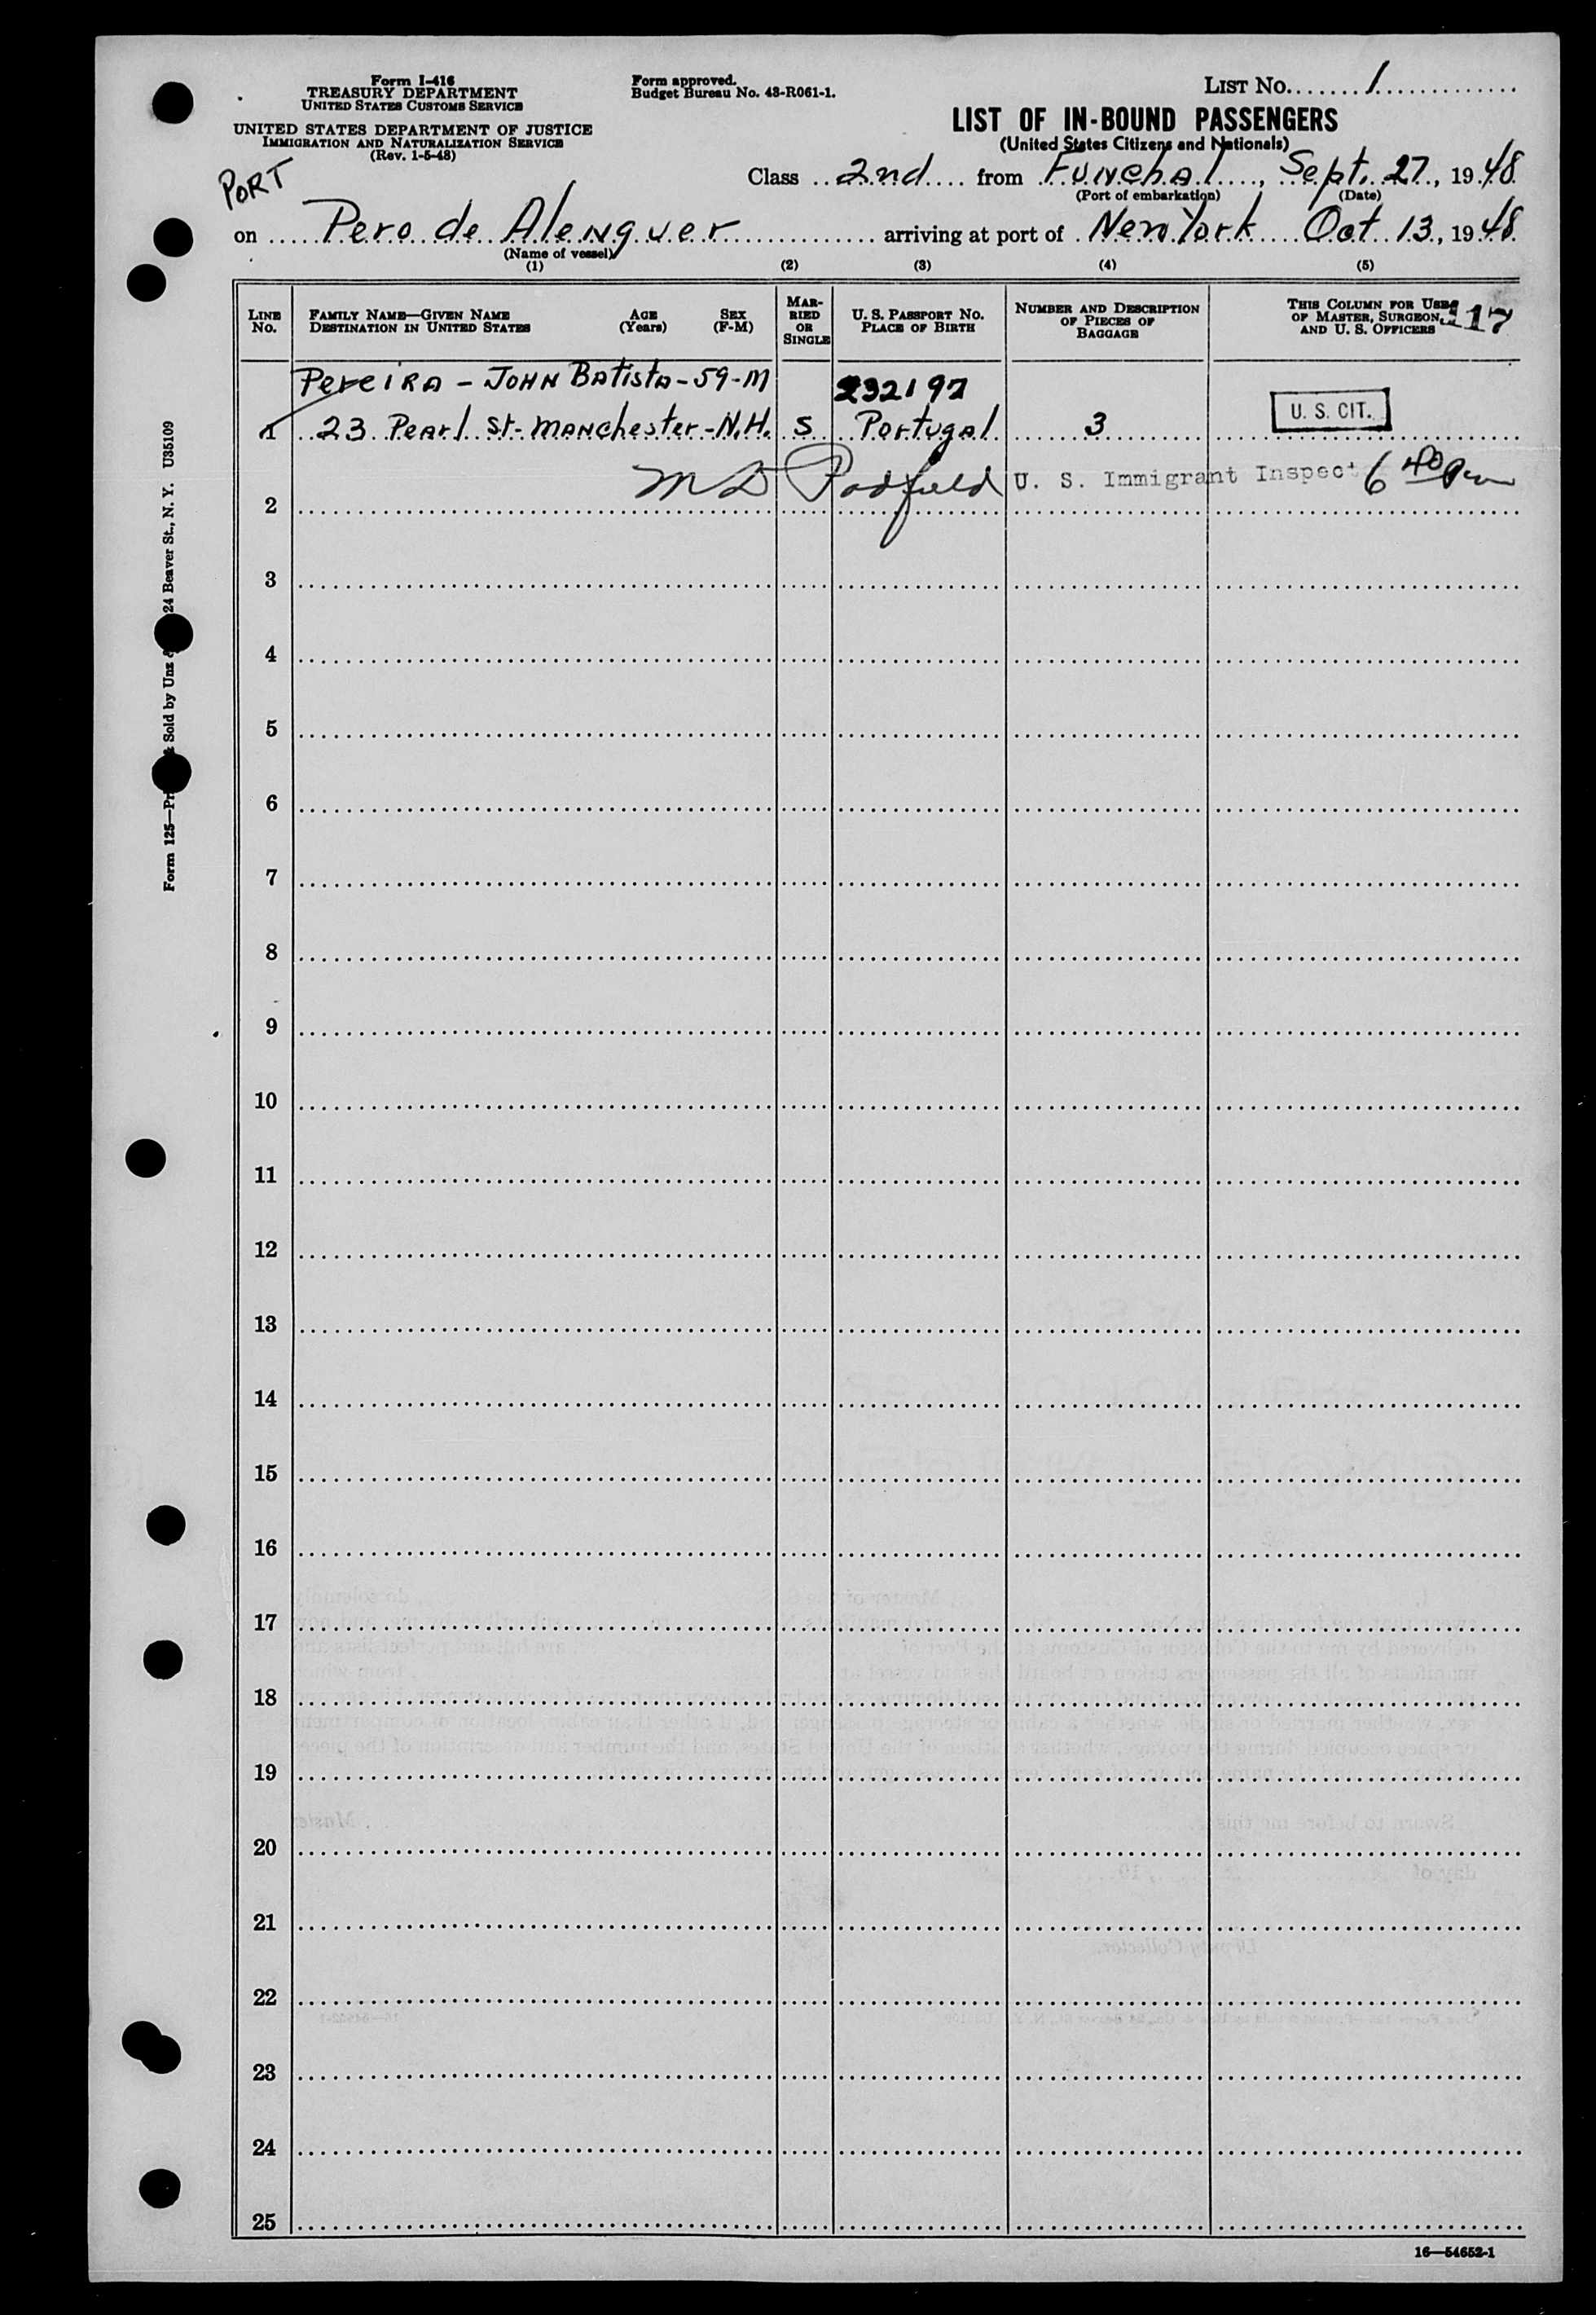 Form I-416
TREASURY DEPARTMENT
UNITED STATES CUSTOMS SERVICE
UNITED STATES DEPARTMENT OF JUSTICE
IMMIGRATION AND NATURALIZATION SERVICE
(Rev. 1-5-48)
Form approved.
Budget Bureau No. 43-R061-1.
LIST No. 1
LIST OF IN-BOUND PASSENGERS
(United States Citizens and Nationals)
Class 2nd from Funchal, Sept. 27, 1948
(Port of embarkation) (Date)
PORT
on Pero de Alenquer arriving at port of New York Oct. 13, 1948
(Name of vessel)
(1) (2) (3) (4) (5)
LINE No.
FAMILY NAME—GIVEN NAME AGE SEX
DESTINATION IN UNITED STATES (Years) (F-M)
MARRIED OR SINGLE
U. S. PASSPORT No.
PLACE OF BIRTH
NUMBER AND DESCRIPTION OF PIECES OF BAGGAGE
THIS COLUMN FOR USE OF MASTER, SURGEON, AND U. S. OFFICERS
117
Pereira - John Batista - 59 - M 232197
1 23 Pearl St- Manchester - N.H. S Portugal 3 U. S. CIT.
M D Padfield U. S. Immigrant Inspect 6 40 pm
2
3
4
5
6
7
8
9
10
11
12
13
14
15
16
17
18
19
20
21
22
23
24
25
16—54652-1
Sold by Unz 24 Beaver St., N. Y. U35109
Form 125